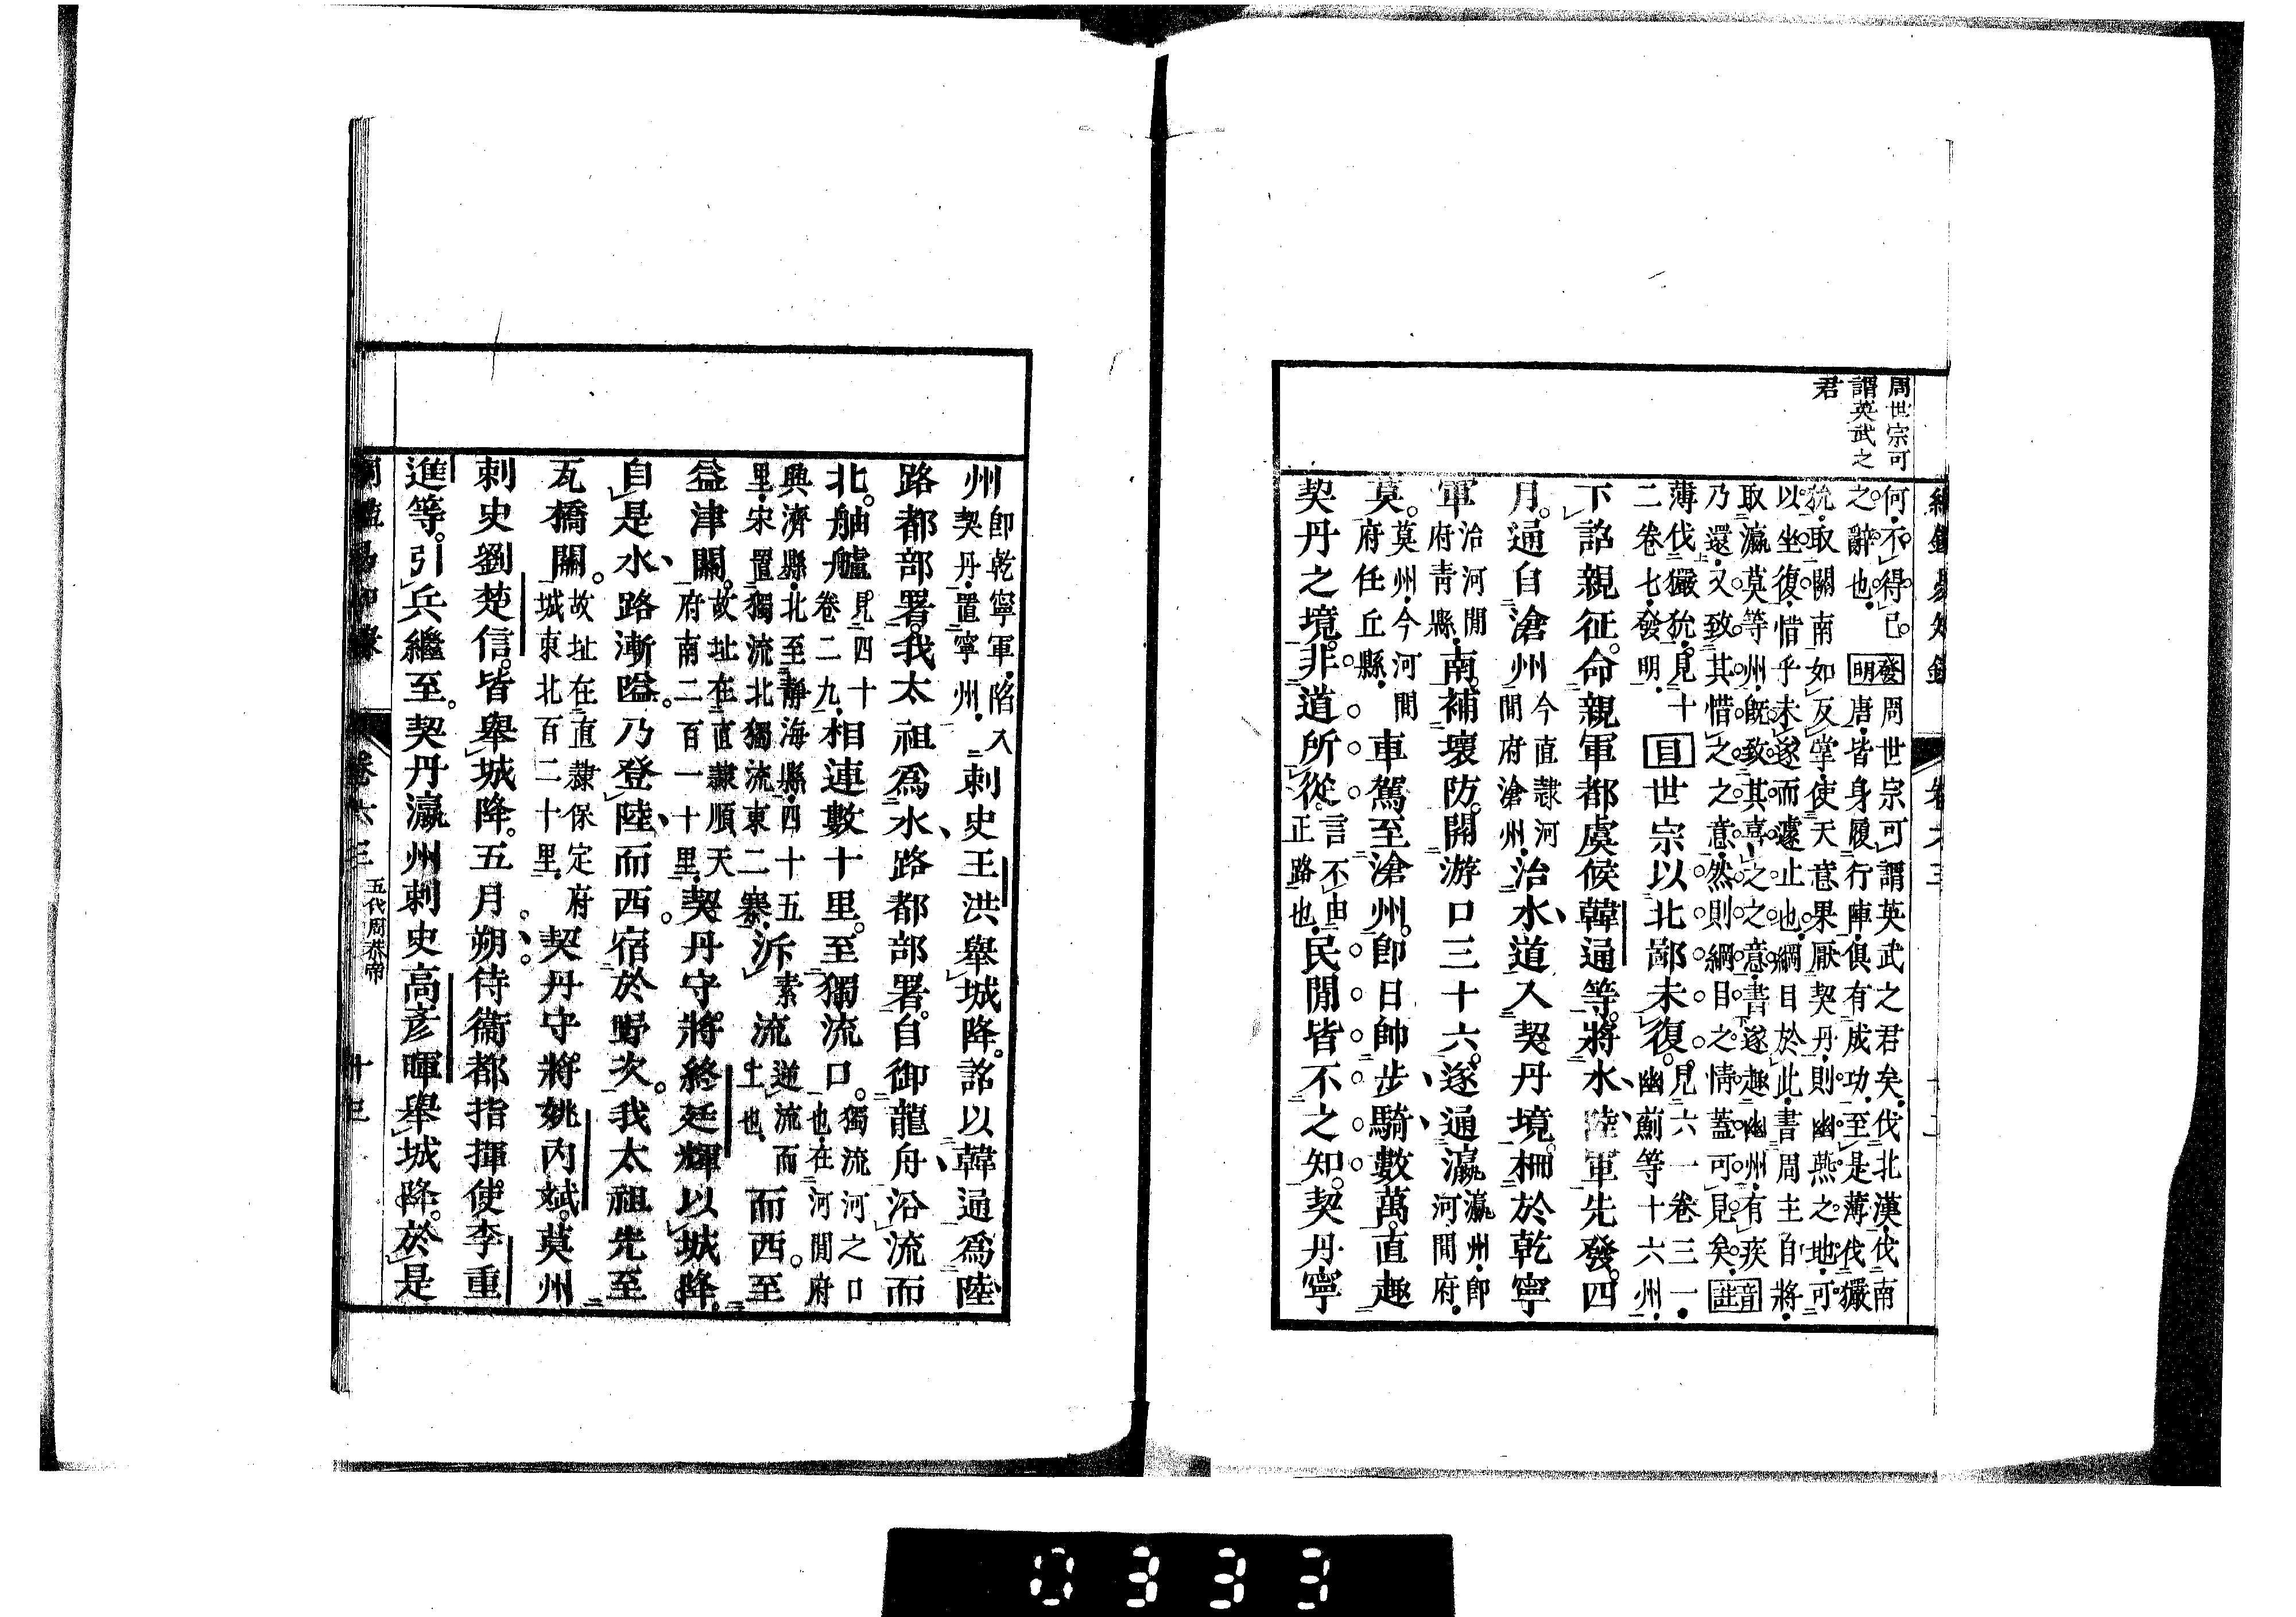 周世宗可
謂英武之
君
何不得已
之辭也
發明
周世宗可謂英武之君矣伐北漢伐南
唐皆身履行陣俱有成功至是薄伐玁
狁取關南如反掌使天意果厭契丹則幽燕之地可
以坐復惜乎未遂而遽止也綱目於此書周主自將
取瀛莫等州既致其喜之之意書遂趣幽州有疾
乃還又致其惜之之意然則綱目之情蓋可見矣
音註
薄伐玁狁見十
二卷七發明
目
世宗以北鄙未復
見六一卷三一
幽薊等十六州
下詔親征命親軍都虞候韓通等將水陸軍先發四
月通自滄州
今直隸河
間府滄州
治水道入契丹境柵於乾寧
軍
治河間
府青縣
南補壞防開游口三十六遂通瀛
瀛州即
河間府
莫
莫州今河間
府任丘縣
車駕至滄州即日帥步騎數萬直趣
契丹之境非道所從
言不由
正路也
民間皆不之知契丹寧
州
即乾寧軍陷入
契丹置寧州
刺史王洪舉城降詔以韓通爲陸
路都部署我太祖爲水路都部署自御龍舟沿流而
北舳艫
見四十
卷二九
相連數十里至獨流口
獨流河之口
也在河間府
興濟縣北至靜海縣四十五
里宋置獨流北獨流東二寨
泝
素
流
逆流而
上也
而西至
益津關
故址在直隸順天
府南二百一十里
契丹守將終廷輝以城降
自是水路漸隘乃登陸而西宿於野次我太祖先至
瓦橋關
故址在直隸保定府
城東北百二十里
契丹守將姚內斌莫州
刺史劉楚信皆舉城降五月朔侍衞都指揮使李重
進等引兵繼至契丹瀛州刺史高彥暉舉城降於是
卷六三
五代周恭帝
十三